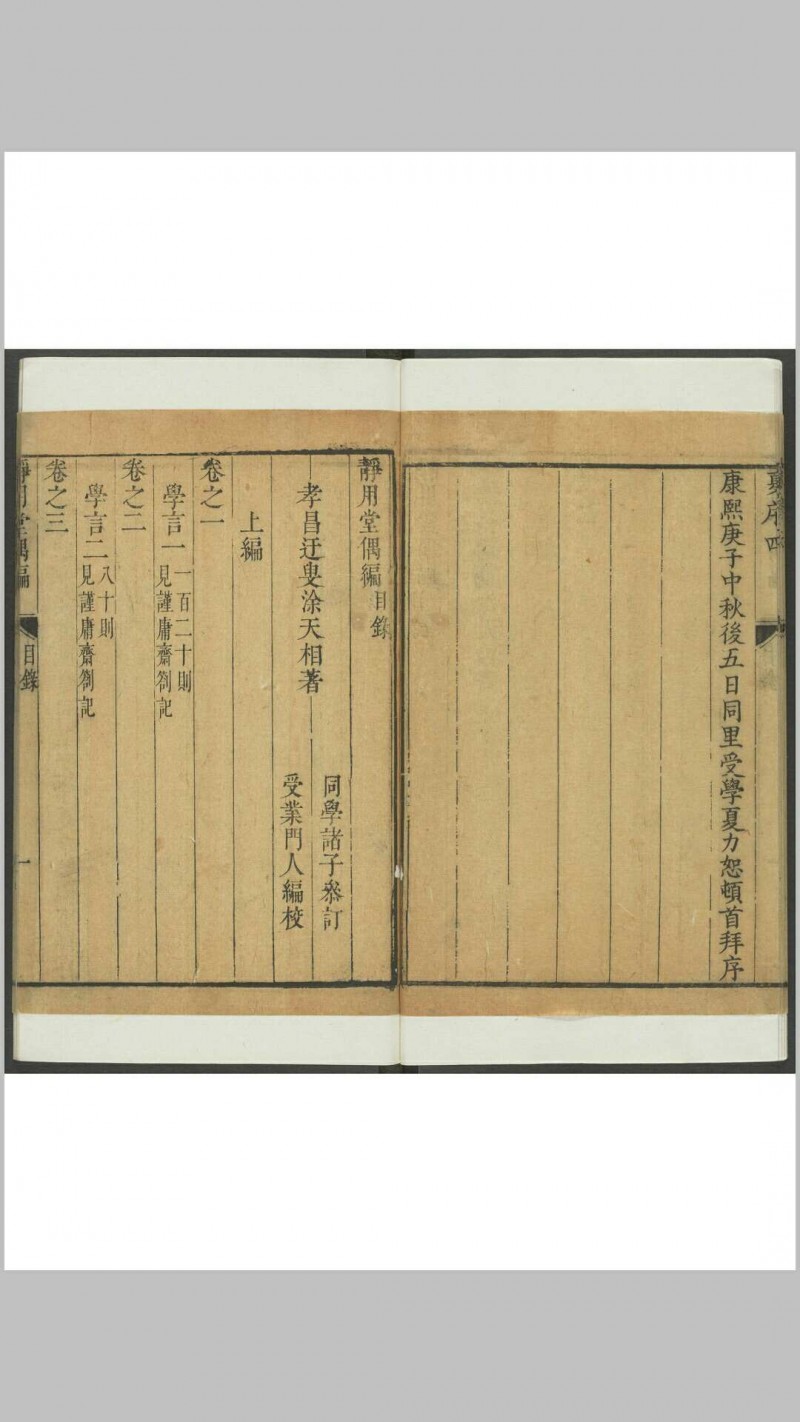 康熙庚子中秋後五日同里受學夏力恕頓首拜序
靜用堂偶編目錄
孝昌迂叟涂天相著
同學諸子叅訂
受業門人編校
上編
卷之一
學言一
一百二十則
見謹庸齋劄記
卷之二
學言二
八十則
見謹庸齋劄記
卷之三
靜用堂偶編
目錄
一